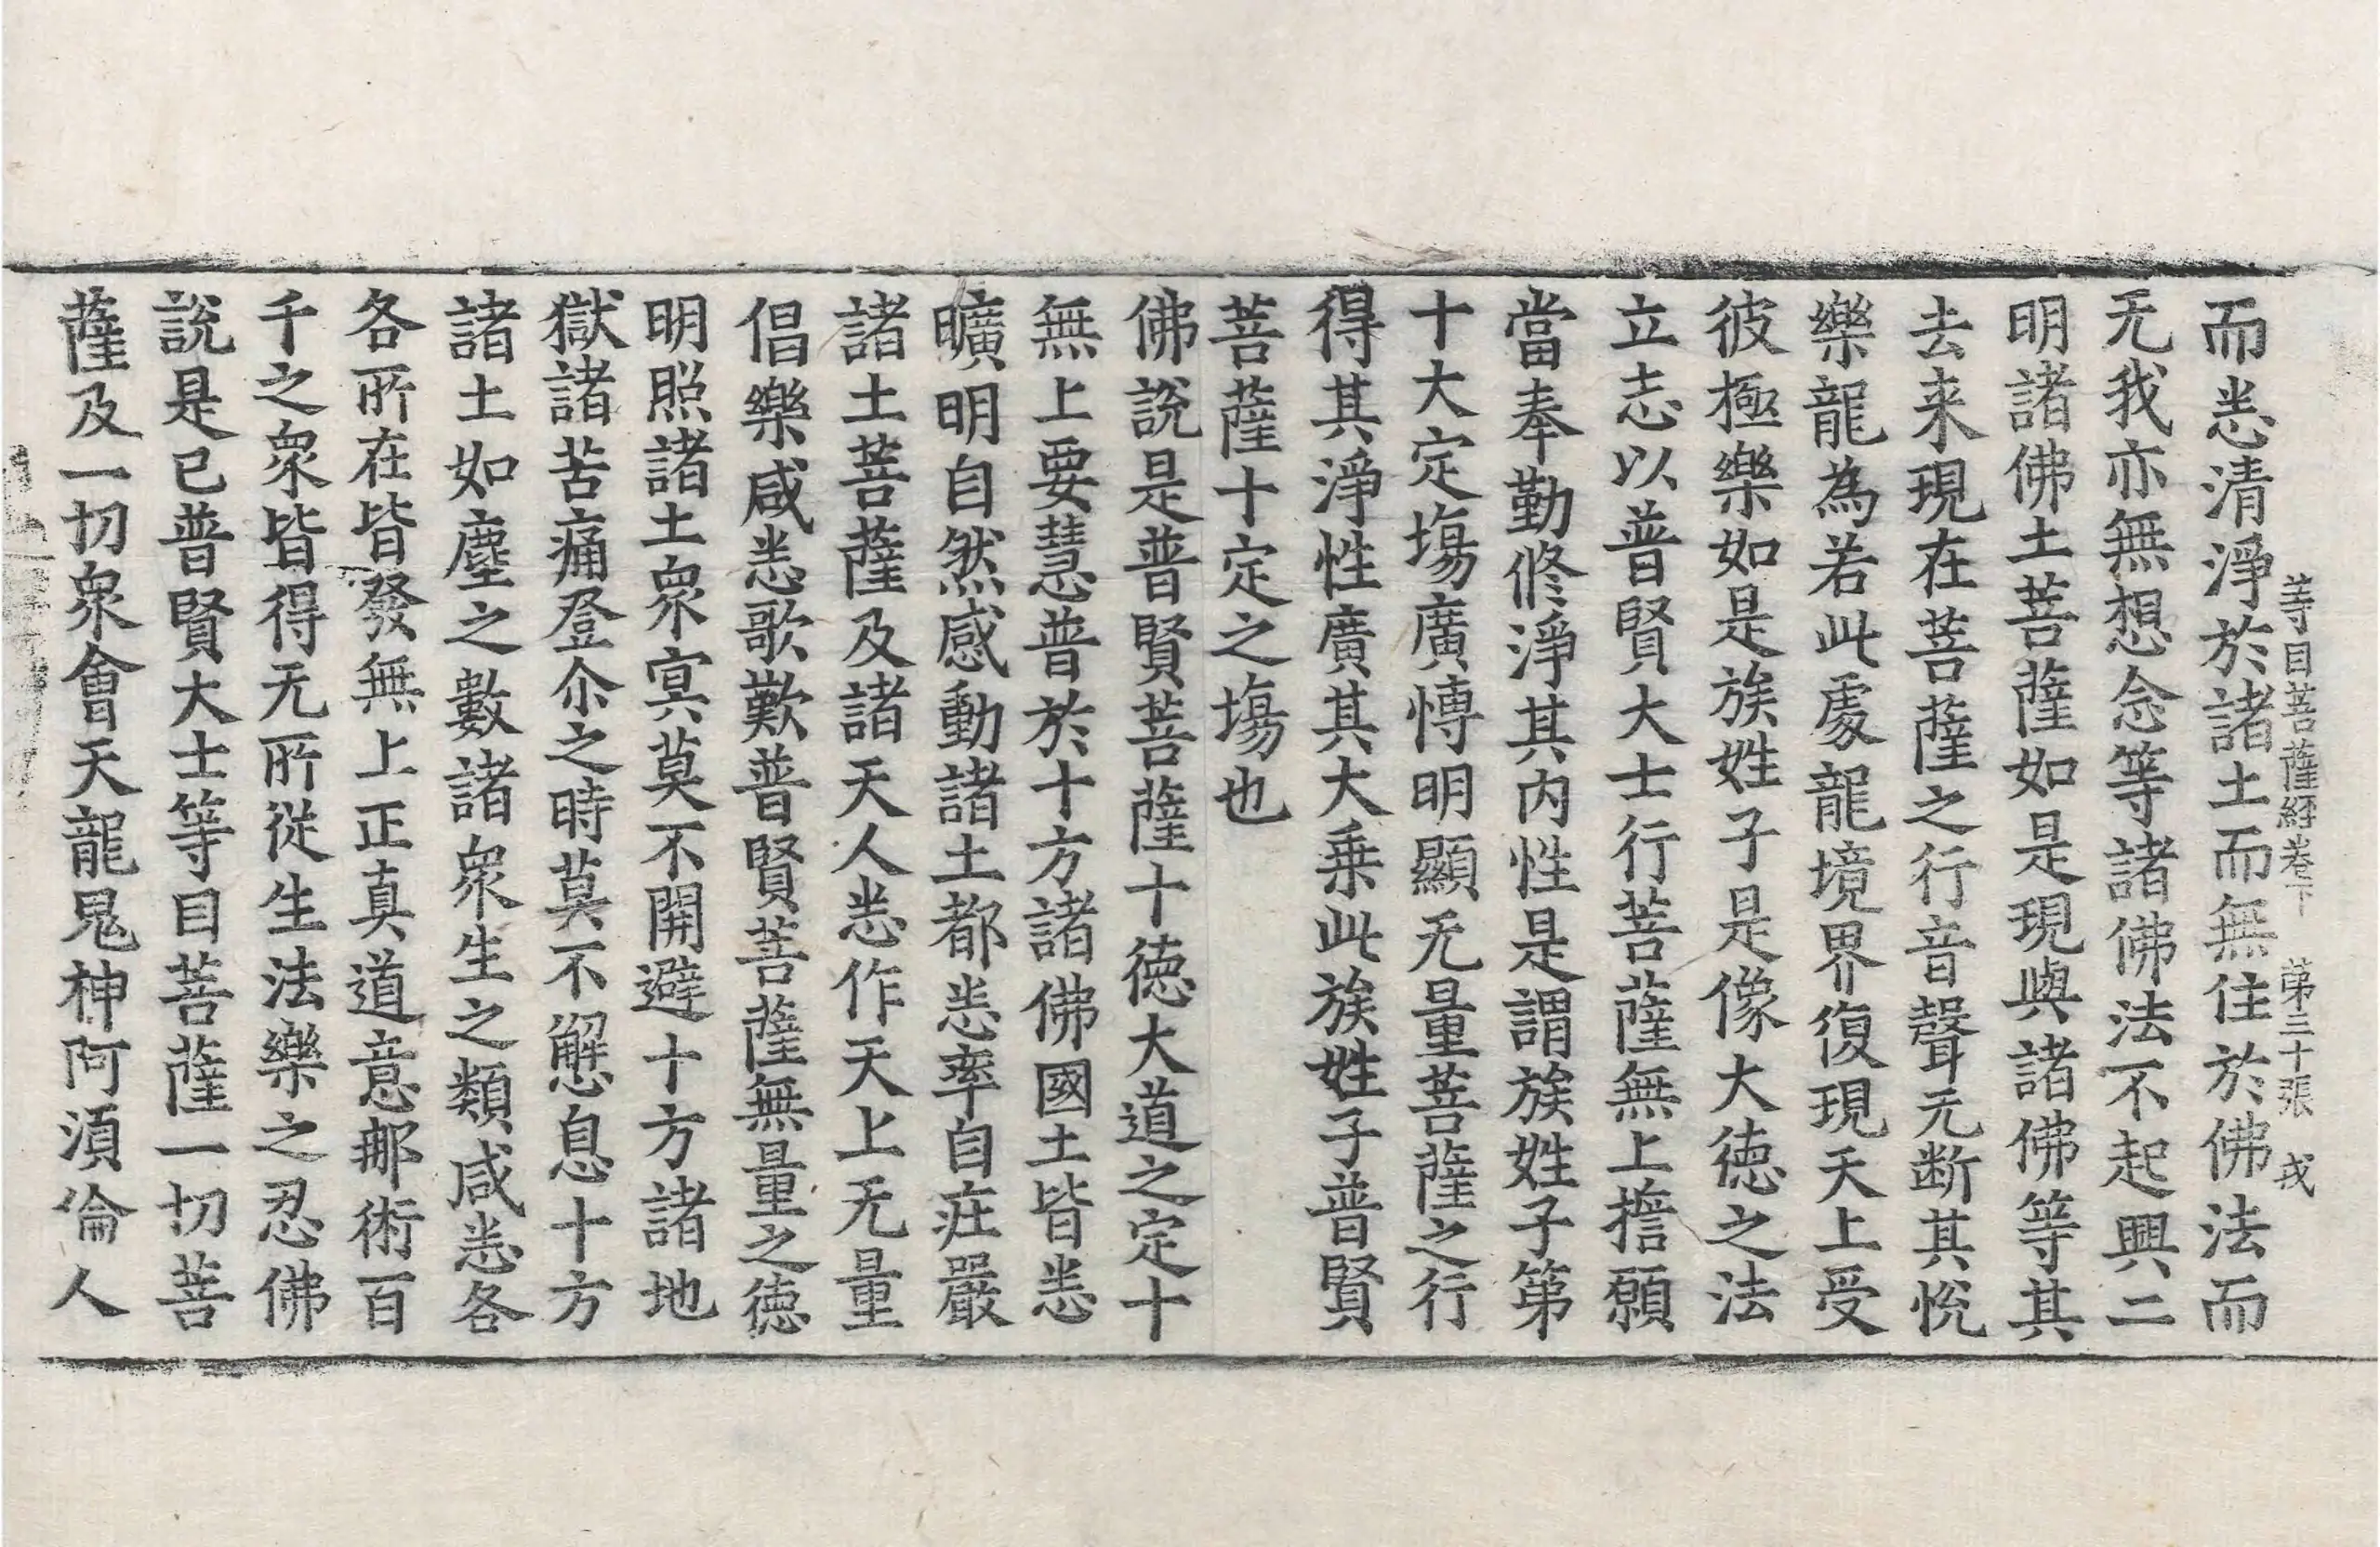 等目菩薩経卷下 第三十張 戎
而悉清淨於諸土而無住於佛法而
无我亦無想念等諸佛法不起興二
明諸佛土菩薩如是現與諸佛等其
去来現在菩薩之行音聲无断其恱
樂龍為若此處龍境界復現天上受
彼極樂如是族姓子是像大德之法
立志以普賢大士行菩薩無上擔願
當奉勤修淨其内性是謂族姓子第
十大定塲廣愽明顯无量菩薩之行
得其淨性廣其大乗此族姓子普賢
菩薩十定之塲也
佛說是普賢菩薩十德大道之定十
無上要慧普於十方諸佛國土皆悉
曠明自然感動諸土都悉率自莊嚴
諸土菩薩及諸天人悉作天上无量
倡樂咸悉歌歎普賢菩薩無量之德
明照諸土衆㝠莫不開避十方諸地
獄諸苦痛登尒之時莫不懈息十方
諸土如塵之數諸衆生之類咸悉各
各所在皆發無上正真道意郍術百
千之衆皆得无所從生法樂之忍佛
說是已普賢大士等目菩薩一切菩
薩及一切衆會天龍鬼神阿須倫人